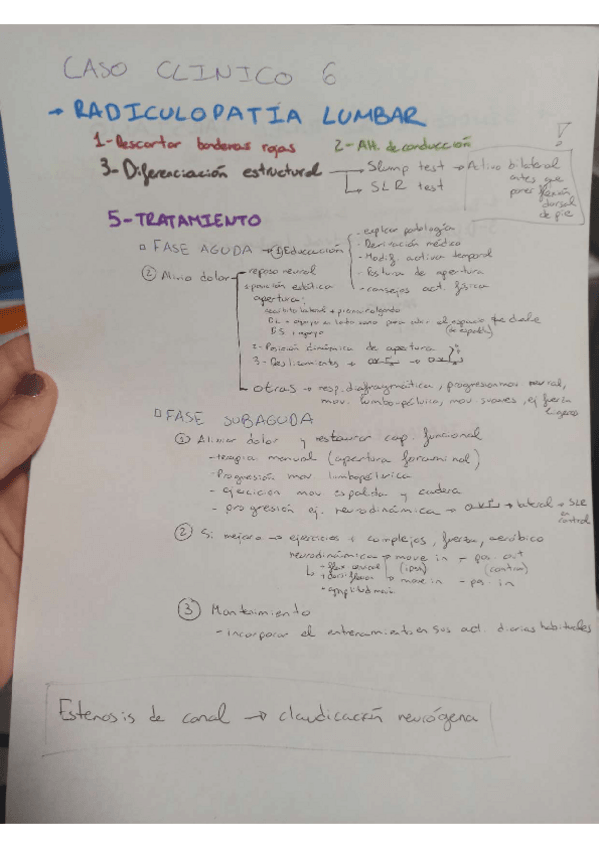 CASO CLINICO 6
→ RADICULOPATÍA LUMBAR
1- Descartar banderas rojas 2- Alt. de conducción
3- Diferenciación estructural → Slump test → Activo bilateral antes que poner flexión dorsal de pie
→ SLR test
5- TRATAMIENTO
FASE AGUDA → ① Educación
- explicar patología
- Derivación médico
- Modif. activa temporal
- Postura de apertura
- consejos act. física
② Alivio dolor
- reposo neural
posición estática
apertura:
decúbito lateral +
+ apoyo en lado sano para abrir el espacio que duele
+ apoyo
2- Posición dinámica de apertura
3- Deslizamientos
otras → resp. diafragmática, progresion mov neural,
mov. lumbo-pélvico, mov suaves, ej fuerza
ligeros
FASE SUBAGUDA
① Aliviar dolor y restaurar cap. funcional
- terapia manual (apertura foraminal)
- Progresión mov lumbopélvica
- ejercicion mov espalda y cadera
- progresión ej. neurodinámica → → lateral → SLR
en
control
② Si mejora → ejercicios + complejos, fuerza, aeróbico
neurodinámica → move in - pos. out
(ipsi) (contra)
→ move in - pos. in
③ Mantenimiento
- incorporar el entrenamiento en sus act. diarias habituales
Estenosis de canal → claudicación neurógena